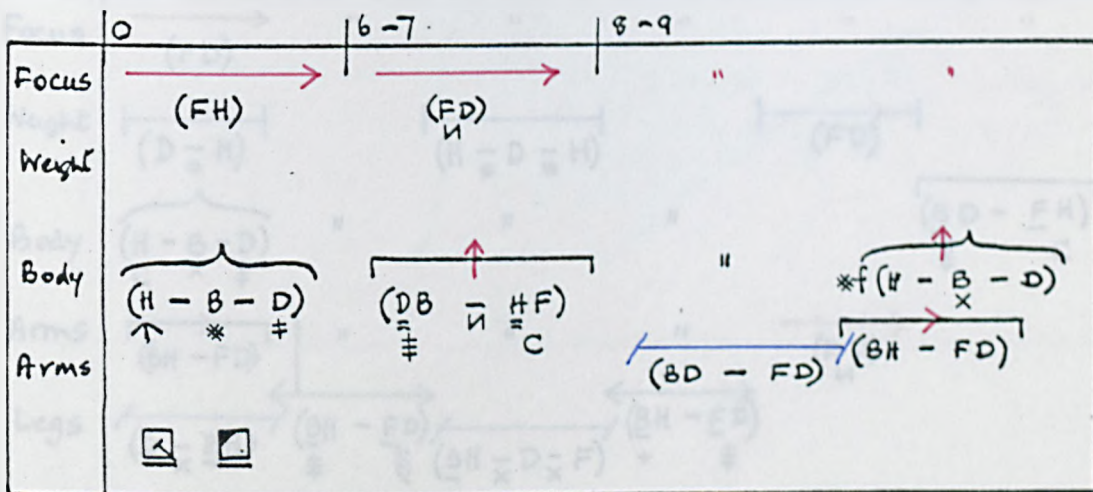 0 6-7 8-9
Focus " "
(FH) (FD)
И
Weight
Body (H - B - D) (DB - HF) " *f (H - B - D)
* # И # C x
Arms (BD - FD) (BH - FD)